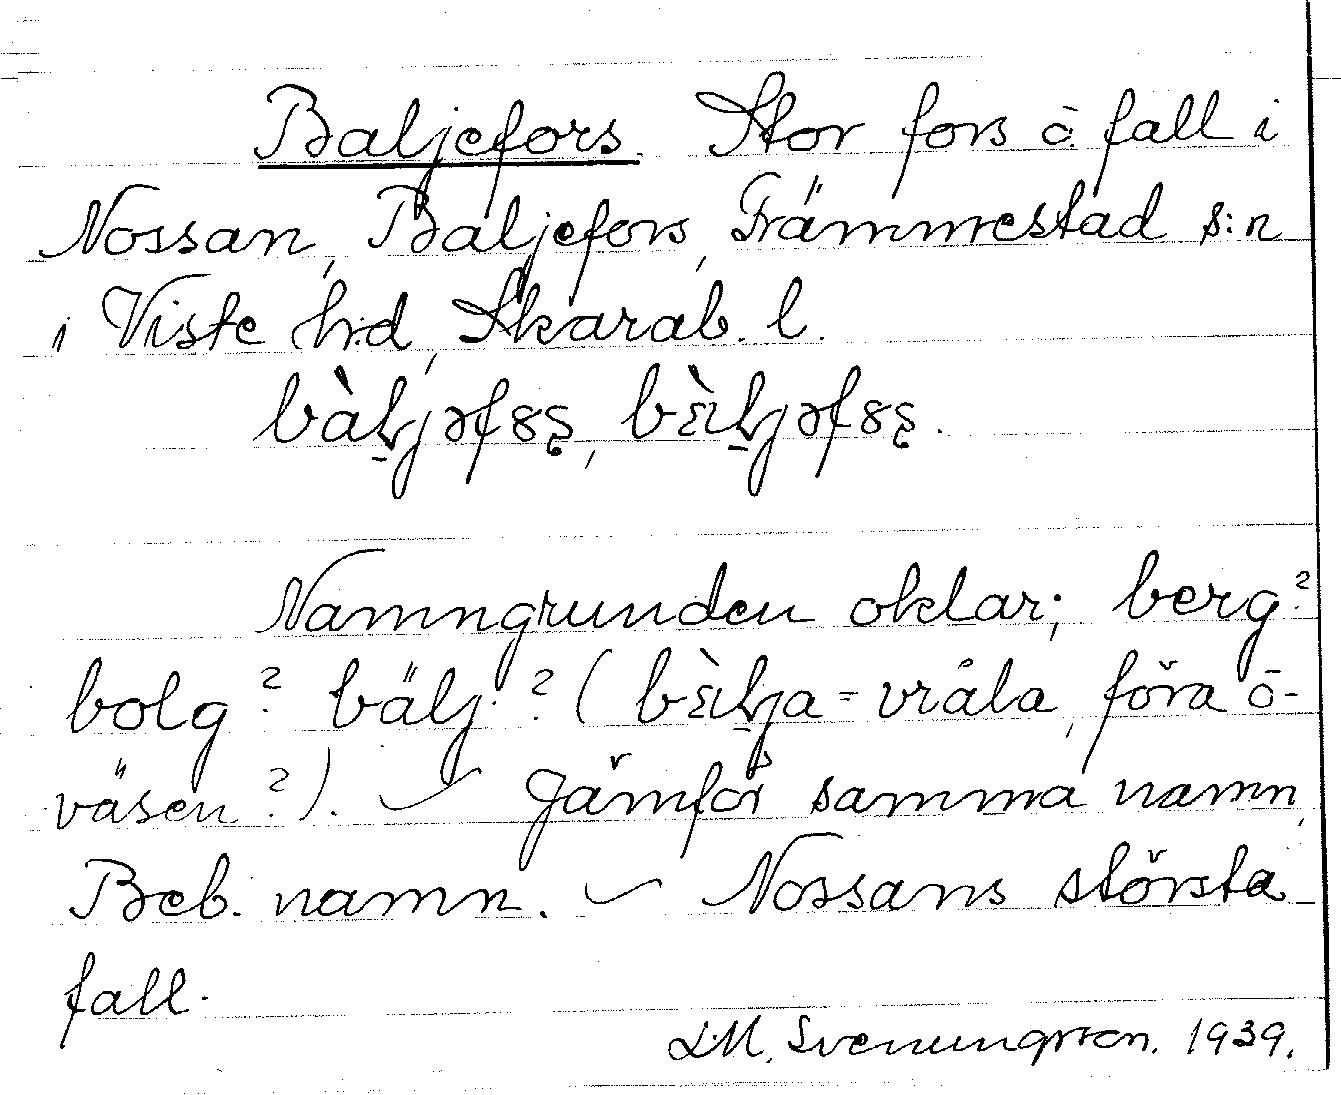 Baljefors. Stor fors o. fall i
Nossan, Baljefors, Främmestad s:n
i Viste h:d, Skarab. l.
Namngrunden oklar; berg?
bolg? bälj? ( = vråla, föra o-
väsen?). Jämför samma namn,
Beb. namn. Nossans största
fall.
L.M. Svenungsson. 1939.